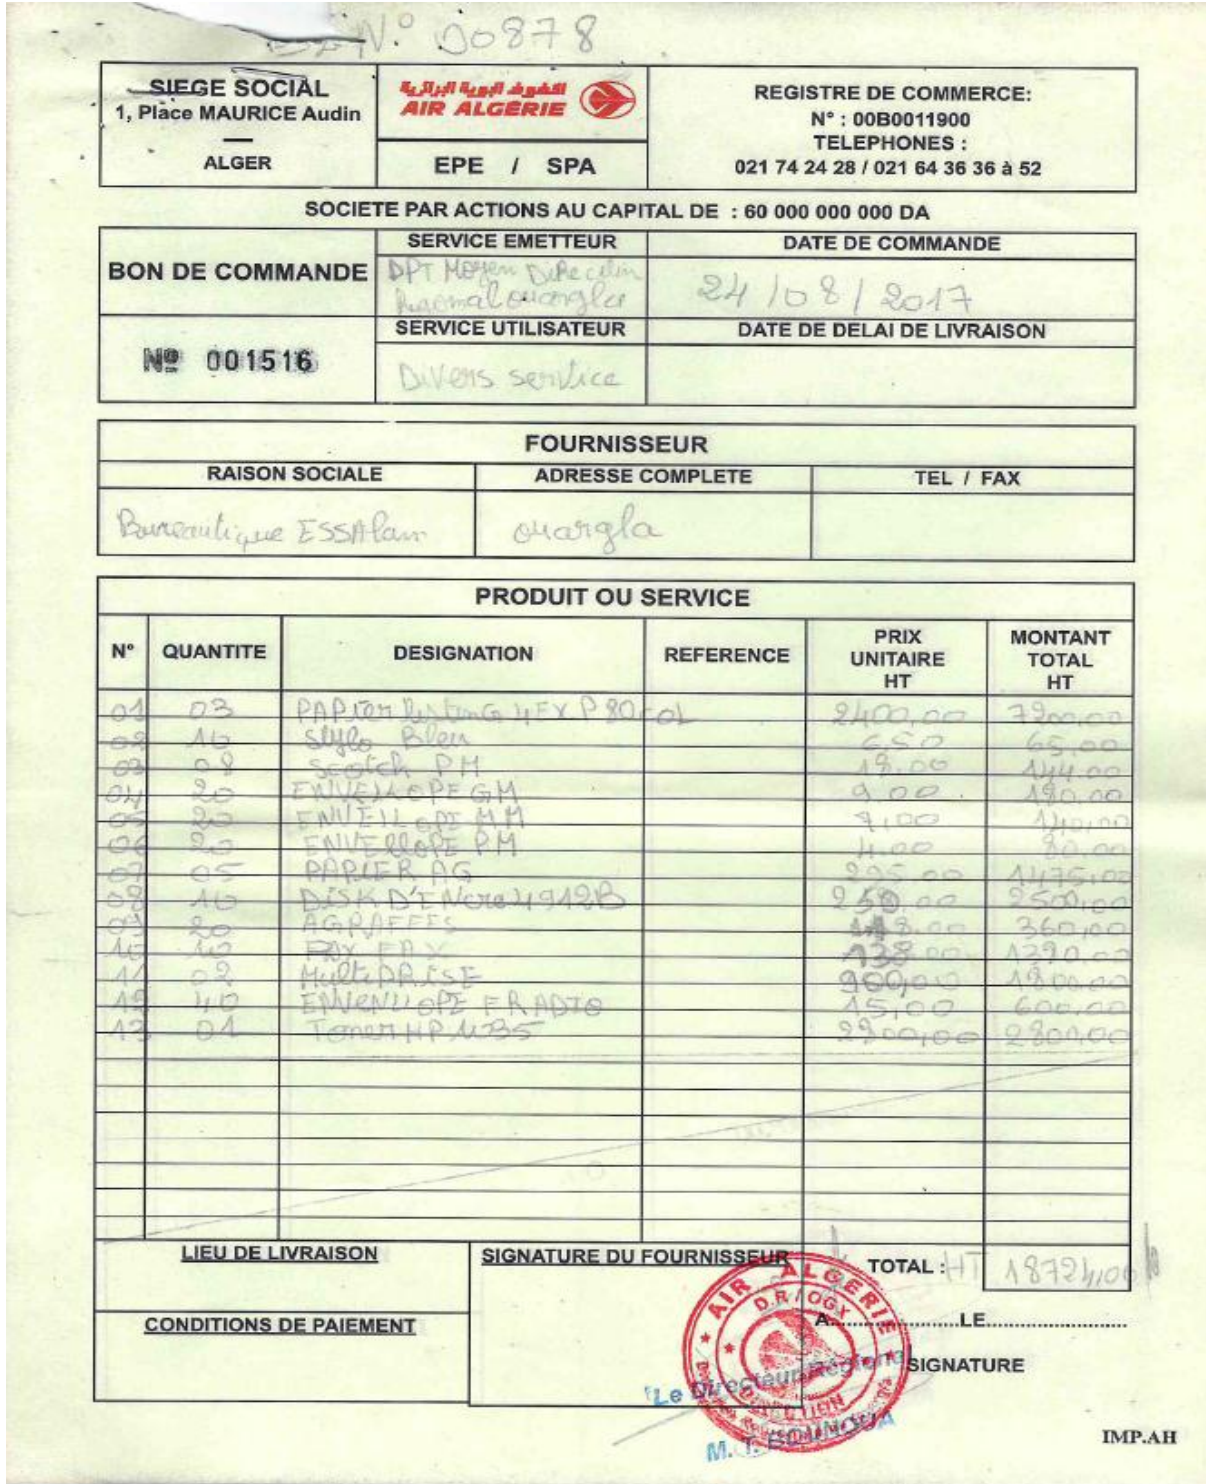 N° 00878
SIEGE SOCIAL
1, Place MAURICE Audin
ALGER
الخطوط الجوية الجزائرية
AIR ALGERIE
EPE / SPA
REGISTRE DE COMMERCE:
N° : 00B0011900
TELEPHONES :
021 74 24 28 / 021 64 36 36 à 52
SOCIETE PAR ACTIONS AU CAPITAL DE : 60 000 000 000 DA
BON DE COMMANDE
Nº 001516
SERVICE EMETTEUR
DPT Moyen Direction
Regional ouargla
DATE DE COMMANDE
24/08/2017
SERVICE UTILISATEUR
Divers service
DATE DE DELAI DE LIVRAISON
FOURNISSEUR
RAISON SOCIALE ADRESSE COMPLETE TEL / FAX
Bureautique ESSAlam ouargla
PRODUIT OU SERVICE
N° QUANTITE DESIGNATION REFERENCE PRIX UNITAIRE HT MONTANT TOTAL HT
01 03 PAPier listinG 4EX P 80 COL 2400,00 7200,00
02 10 Stylo Bleu 6,50 65,00
03 08 Scotch PM 18,00 144,00
04 20 ENVELLOPE GM 9,00 180,00
05 20 ENVELLOPE MM 7,00 140,00
06 20 ENVELLOPE PM 4,00 80,00
07 05 PAPIER 295,00 1475,00
08 10 DISK D'ENcre 4912B 250,00 2500,00
09 20 AGRAFFES 18,00 360,00
10 10 FAX 1390,00
11 02 MultiPRISE 900,00 1800,00
12 40 15,00 600,00
13 01 Toner HP 2800,00 2800,00
LIEU DE LIVRAISON
CONDITIONS DE PAIEMENT
SIGNATURE DU FOURNISSEUR
TOTAL : HT 18724,00
A......................LE........................
SIGNATURE
AIR ALGERIE
D.R/OGX
DIRECTION
Le Directeur Régional
M. T. BOUNOUA
IMP.AH